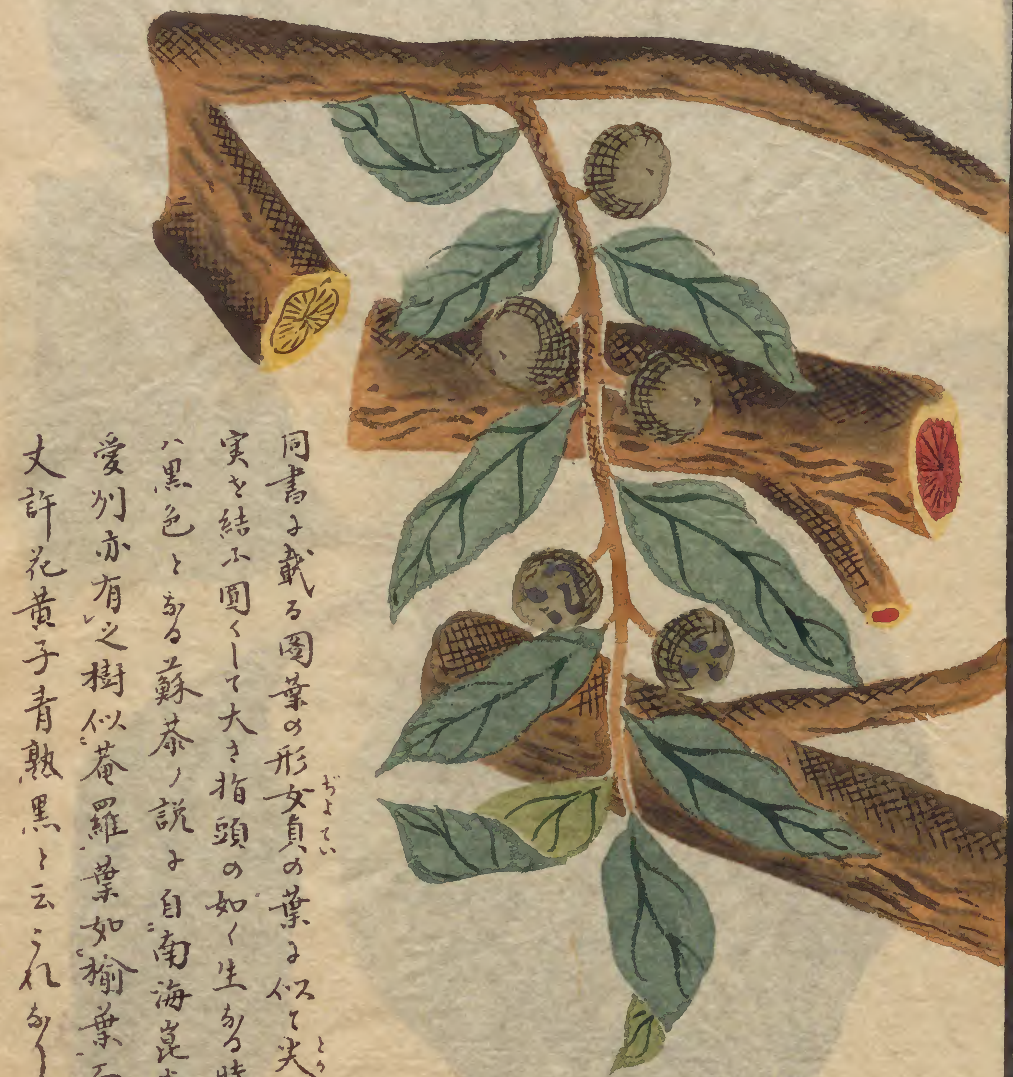 同書に載る圖葉の形女貞の葉に似て尖
ぢよてい
とか
実を結ふ圓くして大さ指頭の如く生なる時
ハ黒色となる蘇恭ノ説に自南海崑
愛州亦有之樹似菴羅葉如榆葉而
丈許花黄子青熟黒と云これなり